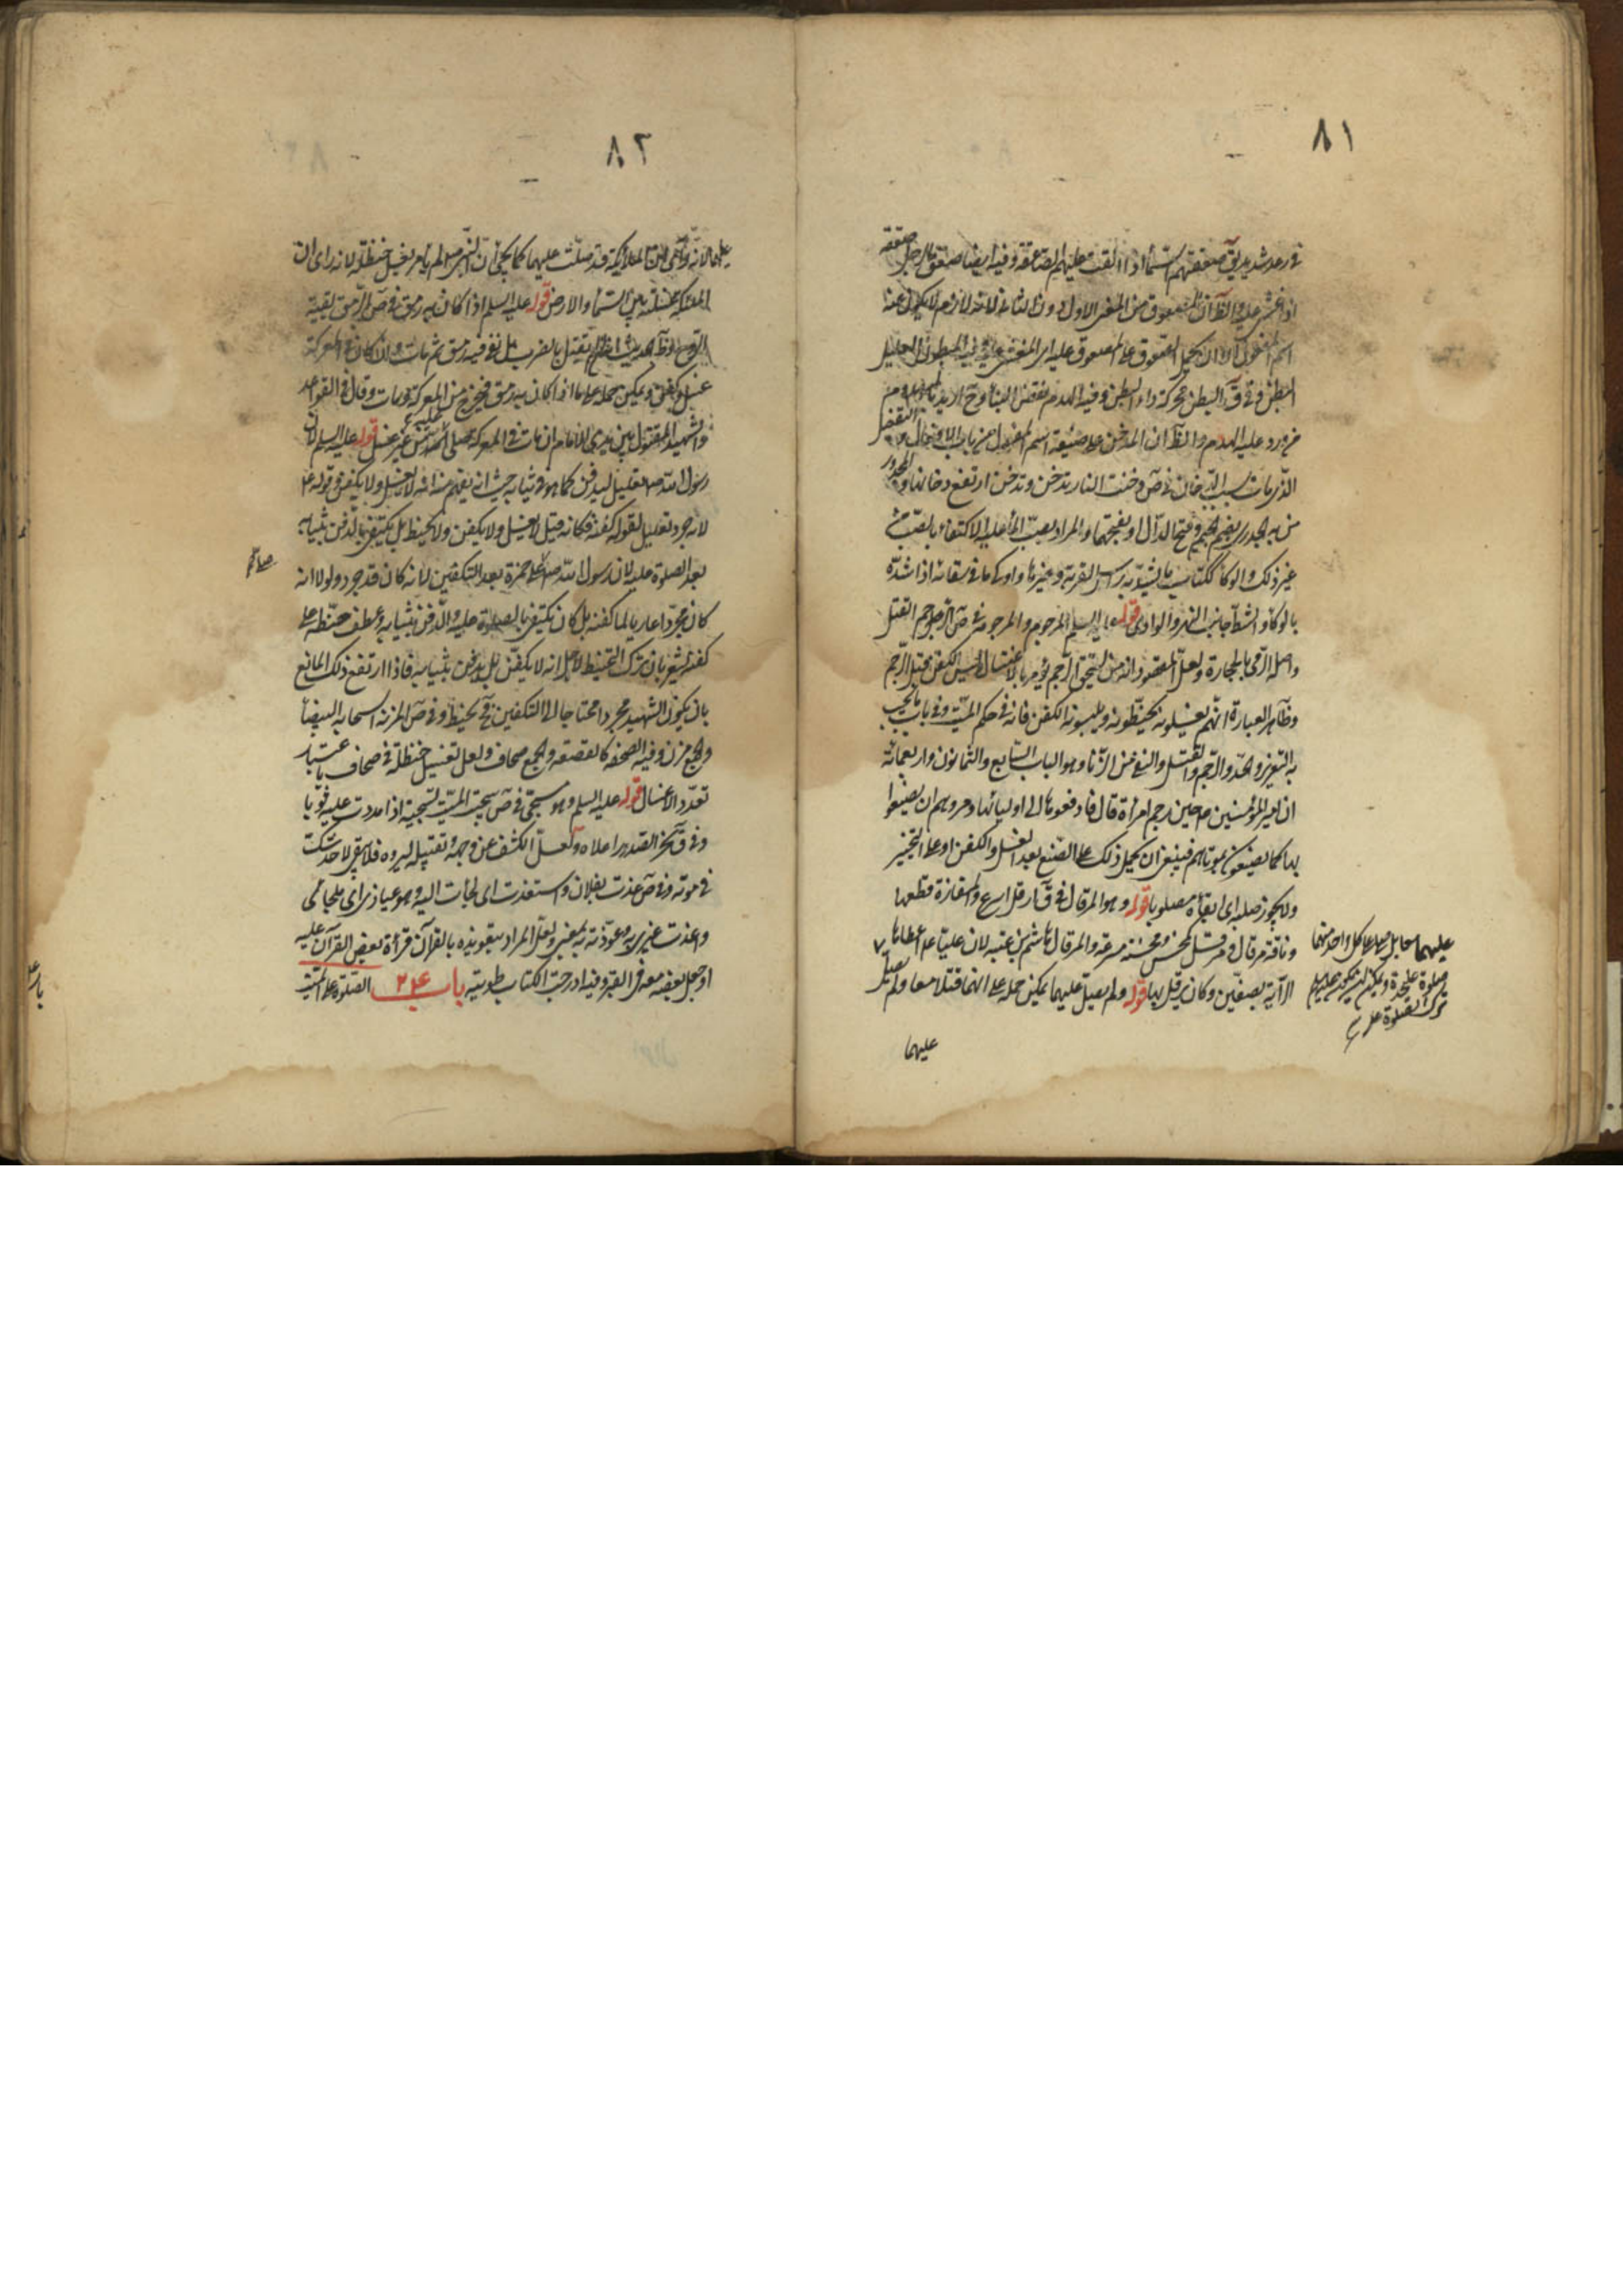 ٨١
في رعد شديد يق صعقتهم السماء اذا القت عليهم الصاعقة وفيه ايضا صعق الرجل صعقة
اذا غشي عليه والظ ان المصعوق من المعنى الاول دون الثاني لانه لازم لا يكون عنه
اسم المفعول الا ان يحمل المصعوق على المصعوق عليه اي المغشي عليه وفيه المبطون العليل
البطن وفي ق البطن محركة داء البطن وفيه الهدم نقض البناء
من ورد عليه الهدم والظ ان المدخن على صيغة اسم المفعول من باب
الذي مات بسبب الدخان في ص دخنت النار تدخن وتدخن ارتفع دخانها والمجدور
من به الجدري بضم الجيم وفتح الدال او بفتحهما والمراد بصب الماء عليه الاكتفاء بالصب
غير ذلك والوكاء ككتاب ما يشد به راس القربة وغيرها واوكى ما في سقائه اذا شده
بالوكاء والشط جانب النهر والوادي قوله عليه السلم المرجوم والمرجومة في ص الرجم القتل
واصله الرمي بالحجارة ولعل المقصود انه من استحق الرجم يؤمر بالاغتسال ولبس الكفن قبل الرجم
وظاهر العبارة انهم يغسلونه ويحنطونه ويلبسونه الكفن فانه في حكم الميت وفي باب ما يجب
به التعزير والحد والرجم والقتل والنفي من الزنا وهو الباب السابع والثمانون واربعمائة
ان امير المؤمنين ع حين رجم امرأة قال فادفعوها الى اوليائها ومروهم ان يصنعوا
بها كما يصنعون بموتاهم فينبغي ان يحمل ذلك على الصنع بعد الغسل والكفن او على التخيير
ولا يجوز صلبه اي ابقاؤه مصلوبا قوله وهو المرقال في ق ارقل اسرع والمفازة قطعها
وناقة مرقال ومرقل كمحسن ومحسنة مسرعة والمرقال هاشم بن عتبة لان عليا ع اعطاه
الراية بصفين وكان يرقل بها قوله ولم يصل عليهما يمكن حمله على انهما قتلا معا ولم يصل
عليهما
عليهما معا بل صلى على كل واحد منهما
صلوة عليحدة ويمكن
ترك الصلوة
٨٢
عليهما لانه راى ان الملائكة قد صلت عليهما كما يجئ ان النبي ص لم يامر بغسل حنظلة لانه راى ان
الملائكة غسلته بين السماء والارض قوله عليه السلم اذا كان به رمق في ص الرمق بقية
الروح وظ الحديث انه لم يقتل بالضرب بل بقي فيه رمق ثم مات والا كان في المعركة
غسل وكفن ويمكن حمله على ما اذا كان به رمق فيخرج من المعركة ومات وقال في القواعد
والشهيد المقتول بين يدي الامام ان مات في المعركة صلي عليه من غير غسل قوله عليه السلم لان
رسول الله ص تعليل ليدفن كما هو في ثيابه حيث انه يفهم منه انه لا يغسل ولا يكفن وقوله ع
لانه جرد تعليل لقوله كفنه فكانه قيل لا يغسل ولا يكفن ولا يحنط بل يكتفى بالدفن بثيابه
بعد الصلوة عليه لان رسول الله ص صلى على حمزة بعد التكفين لانه كان قد جرد ولولا انه
كان مجردا عاريا لما كفنه بل كان يكتفي بالصلوة عليه والدفن بثيابه وعطف حنطه على
كفنه يشعر بان ترك التحنيط لاجل انه لا يكفن بل يدفن بثيابه فاذا ارتفع ذلك المانع
بان يكون الشهيد مجردا محتاجا الى التكفين فح يحنط وفي ص المزنة السحابة البيضاء
والجمع مزن وفيه الصحفة كالقصعة والجمع صحاف ولعل تغسيل حنظلة في صحاف باعتبار
تعدد الاغسال قوله عليه السلم وهو مسجى في ص سجيت الميت تسجية اذا مددت عليه ثوبا
وفي ق نحر الصدر اعلاه ولعل الكشف عن وجهه وتقبيله ليروه فلا يبقى لاحد شك
في موته وفي ص عذت بفلان واستعذت اي لجأت اليه وهو عياذي اي ملجأي
واعذت غيري به وعوذته به بمعنى ولعل المراد بتعويذه بالقرآن قرأة بعض القرآن عليه
او جعل بعضه معه في القبر وفيه ادرجت الكتاب طويته باب ع٢ الصلوة على الميت